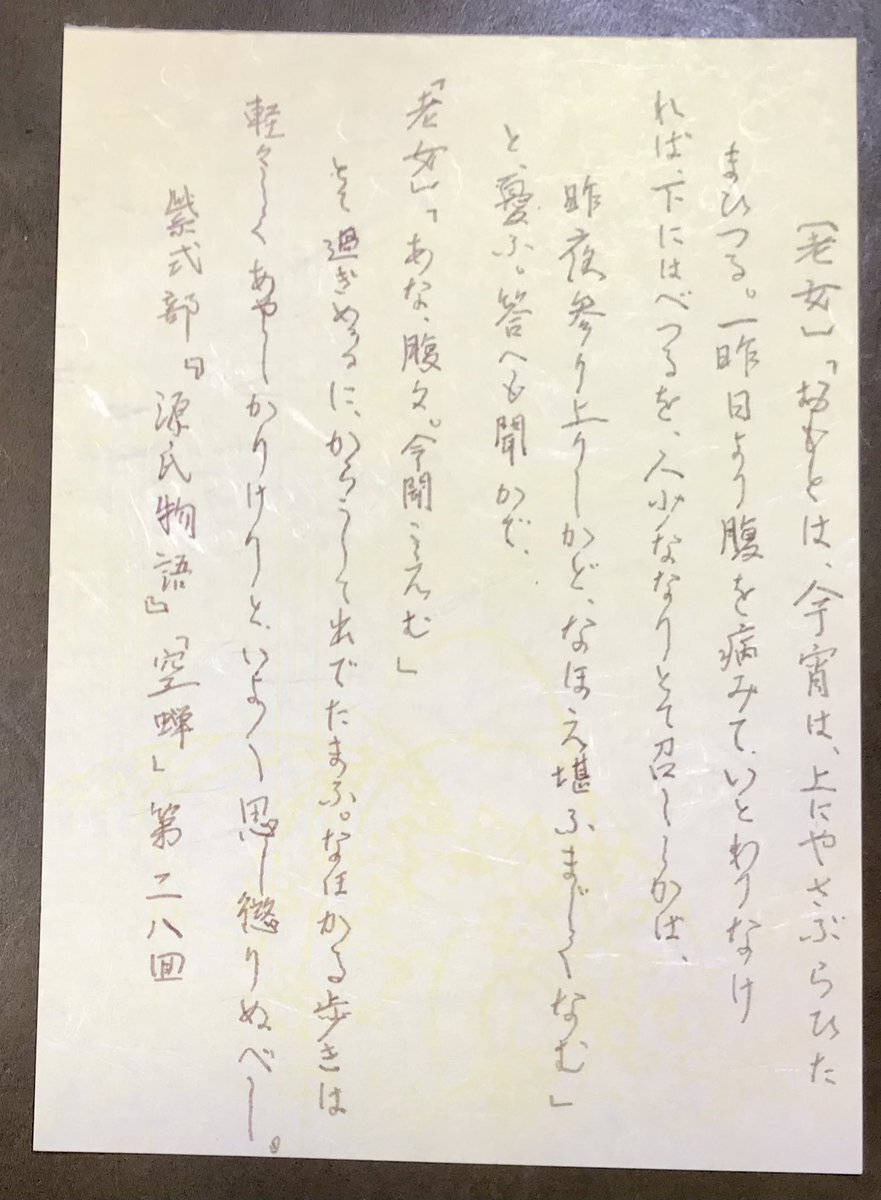 〔老女〕「おもとは、今宵は、上にやさぶらひた
まひつる。一昨日より腹を病みて、いとわりなけ
れば、下にはべつるを、人少ななりとて召ししかば、
昨夜参り上りしかど、なほえ堪ふまじくなむ」
と、憂ふ。答へも聞かで、
「老女」「あな、腹々。今聞こえむ」
とて過ぎぬるに、からうして出でたまふ。なほかる歩きは
軽々しくあやしかりけりと、いよいよ思し懲りぬべし。
紫式部『源氏物語』「空蝉」第二八回